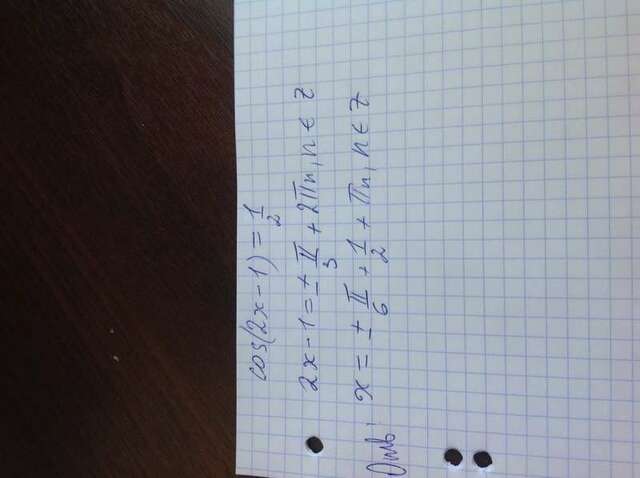 cos(2x-1) = 1/2
2x-1 = ± π/3 + 2πn, n ∈ Z
Отв: x = ± π/6 + 1/2 + πn, n ∈ Z